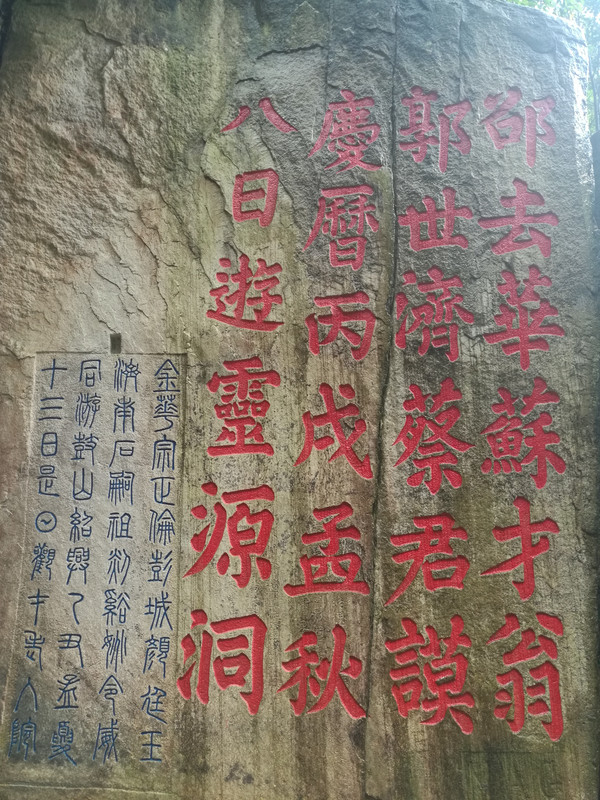 邵去華蘇才翁
郭世濟蔡君謨
慶曆丙戌孟秋
八日遊靈源洞
金華宗正倫彭城顏廷玉
濟南石嗣祖剡谿姚令威
同游鼓山紹興乙丑孟夏
十三日是日觀才老入院